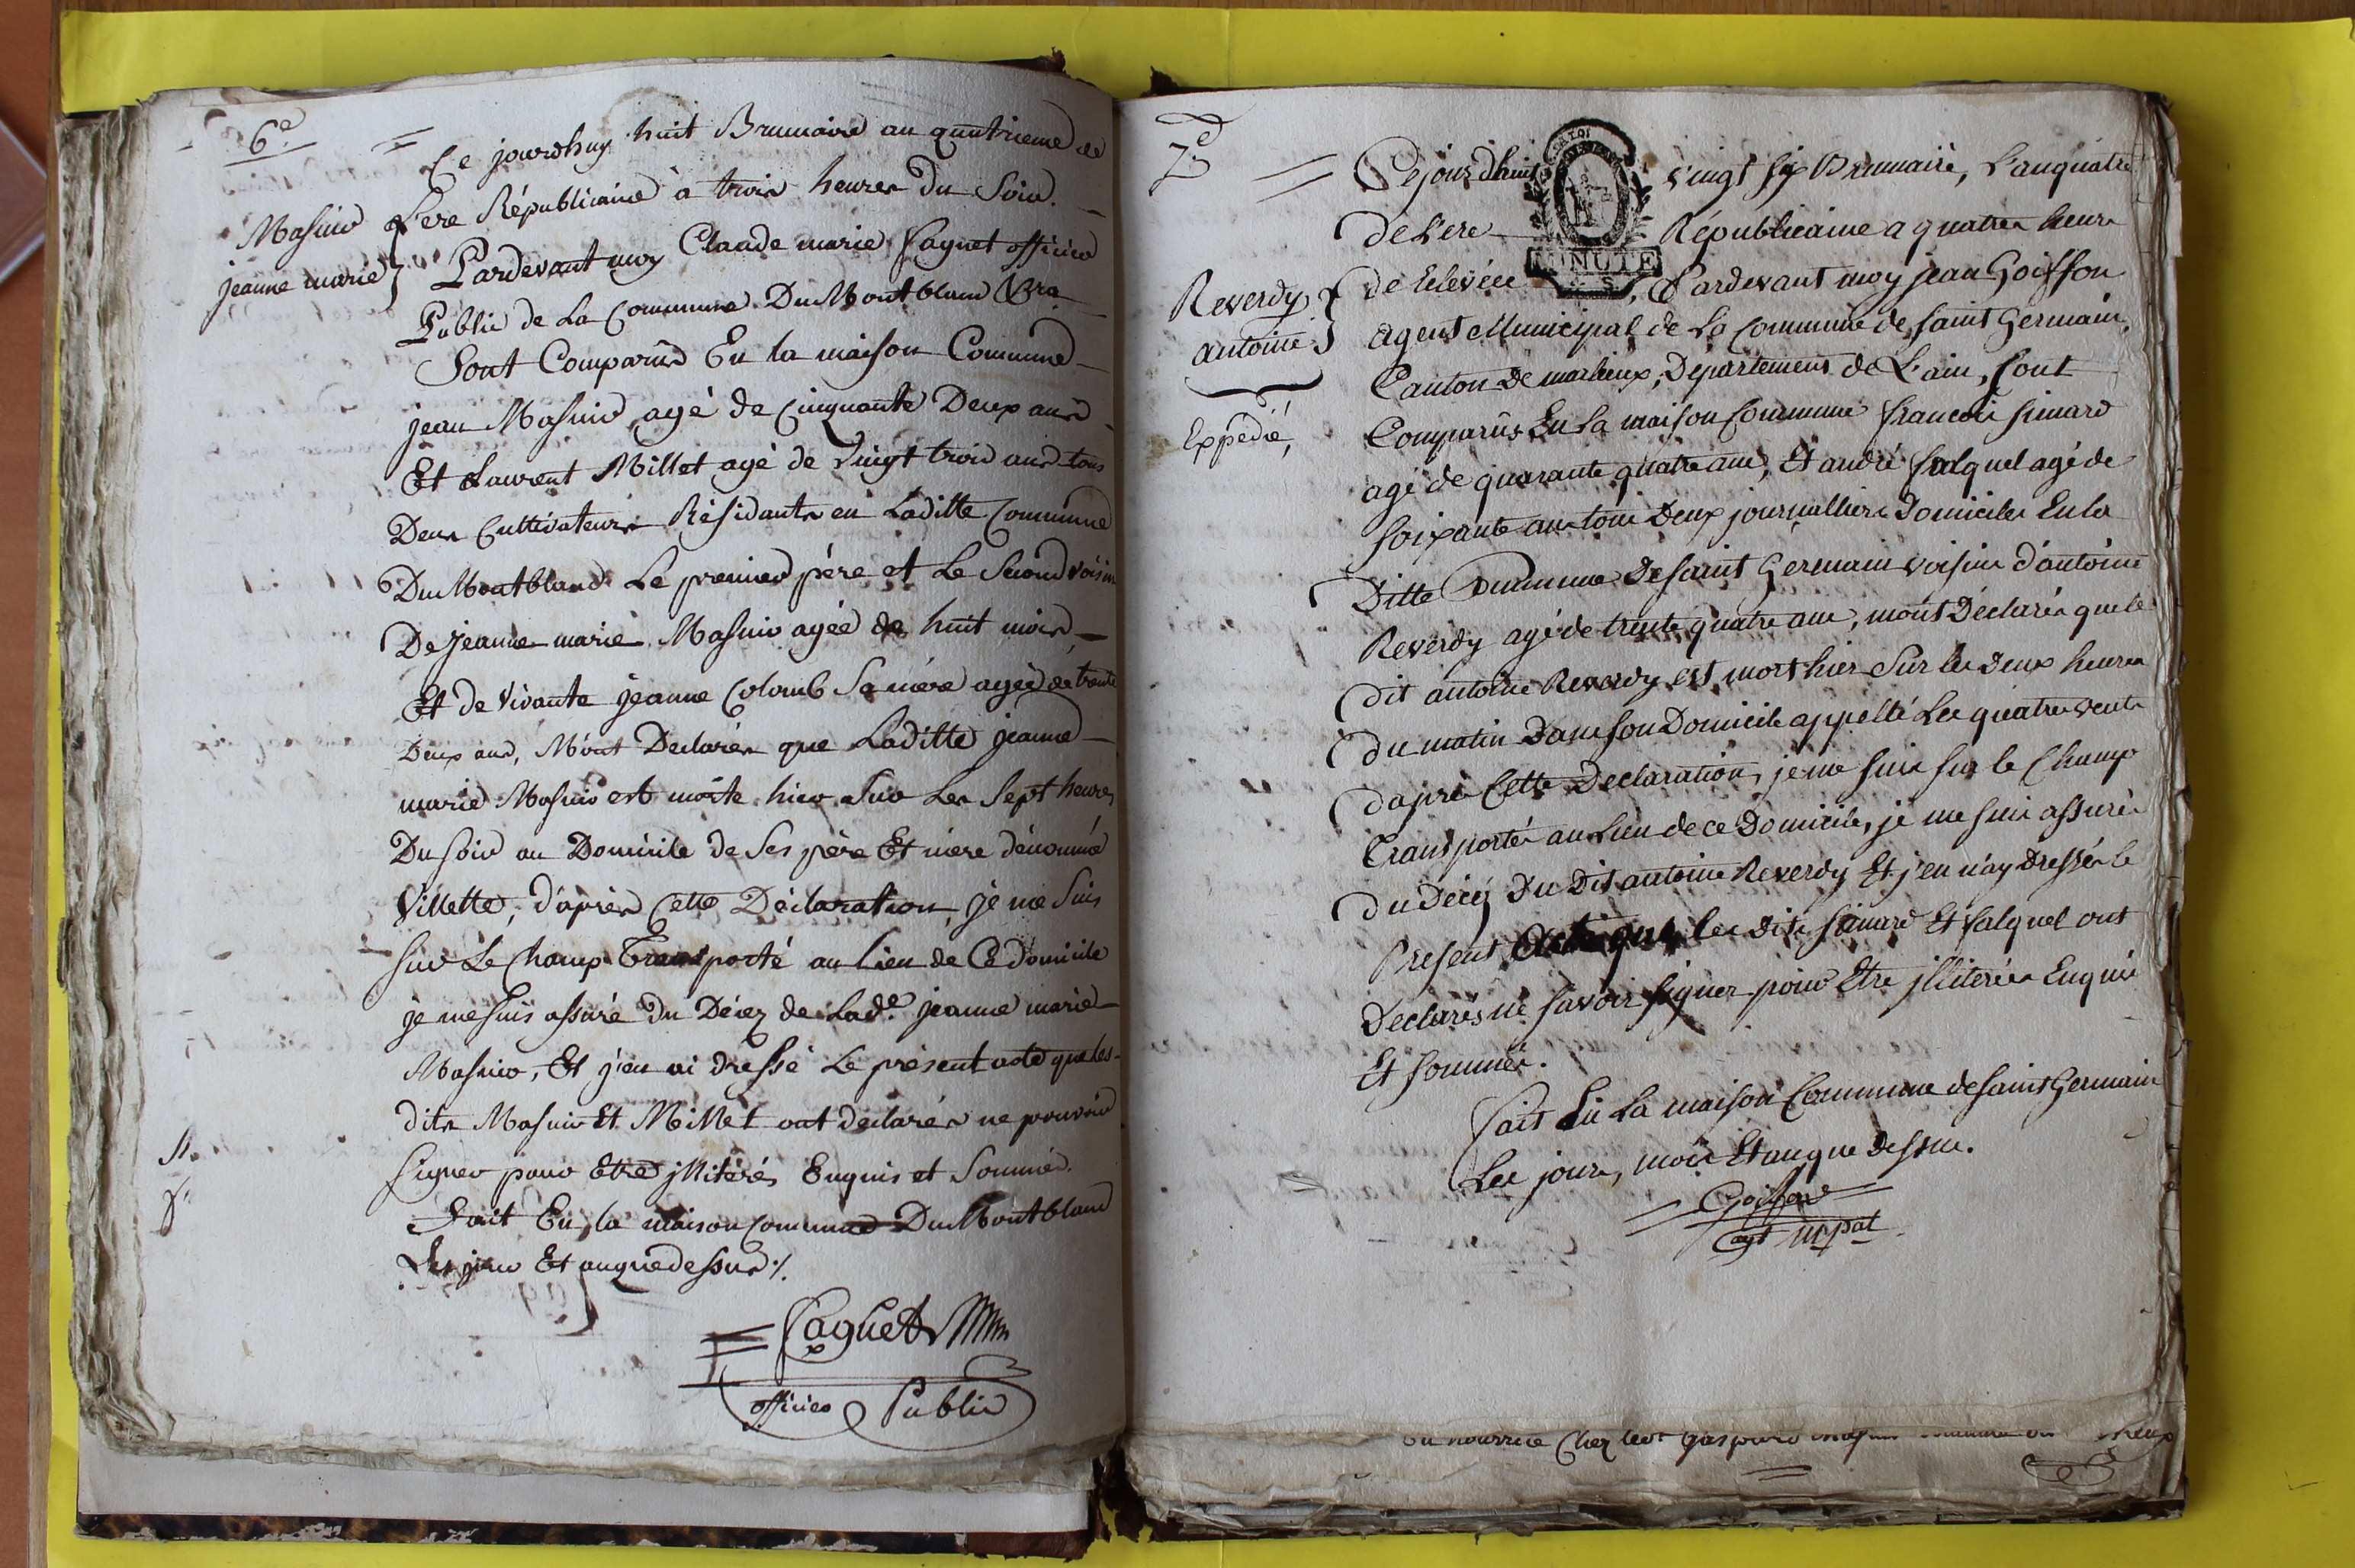 6e
Ce jourdhuy huit Brumaire an quatrieme de
L'ere Républicaine à trois heures du Soir.
Masuir
jeanne marie
Pardevant moy Claude marie Saguet officier
Public de La Commune Du Montblanc
Sont Comparûs En la maison Commune
jean Masuir agé de Cinquante Deux ans
Et Laurent Millet agé de vingt trois ans tous
Deux Cultivateurs Résidants en Laditte Commune
Du Montblanc Le premier père et Le Second voisin
De jeanne marie Masuir agée de huit mois
Et de vivante jeanne Colomb Sa mére agée de trente
Deux ans, M'ont Declarés que Laditte jeanne
marie Masuir est morte hier Sur Les Sept heures
Du Soir au Domicile de Ses père Et mère dénommé
Villette, d'après Cette Déclaration, je me Suis
Sur Le Champ Transporté au Lieu de Ce domicile
je me suis assuré Du Décez de Lade jeanne marie
Masuir, Et j'en ai dressé Le présent acte que les
dits Masuir Et Millet ont declarés ne pouvoir
Signer pour Etre jllitérés Enquis et Sommés.
Fait En la maison Commune Du Montblanc
Les jour Et an que dessus ./.
Saguet
officier Public
7e
Cejourdhuit vingt six Brumaire, L'an quatre
de L'ere Républicaine a quatre heure
Reverdy
antoine
Expédié,
de Relevée, Pardevant moy jean Goiffon
agent Municipal de La Commune de Saint Germain,
Canton De marlieux, Département de L'ain, Sont
Comparûs En La maison Commune francois Simard
agé de quarante quatre ans, Et andré Salquel agé de
Soixante ans tous Deux journalliers Domiciles En la
Ditte Commune De Saint Germain voisins d'antoine
Reverdy agé de trente quatre ans, m'ont Déclarés que le
dit antoine Reverdy est mort hier Sur les deux heures
du matin Dans son Domicile appellé Les quatre vents
daprès Cette Declaration, je me suis sur le Champ
Transportés au Lieu de ce Domicile, je me suis assurés
du Décéz Du Dit antoine Reverdy Et j'en n'ay Dressés le
Present Acte que les dits Simard Et Salquel ont
Declarés ne Savoir signer pour Etre jlliterés Enquis
Et sommés.
Fait En La maison Commune de Saint Germain
Les jours, mois Et an que dessus.
Goiffon
agt mpal
En nourrice Chez leor gaspard